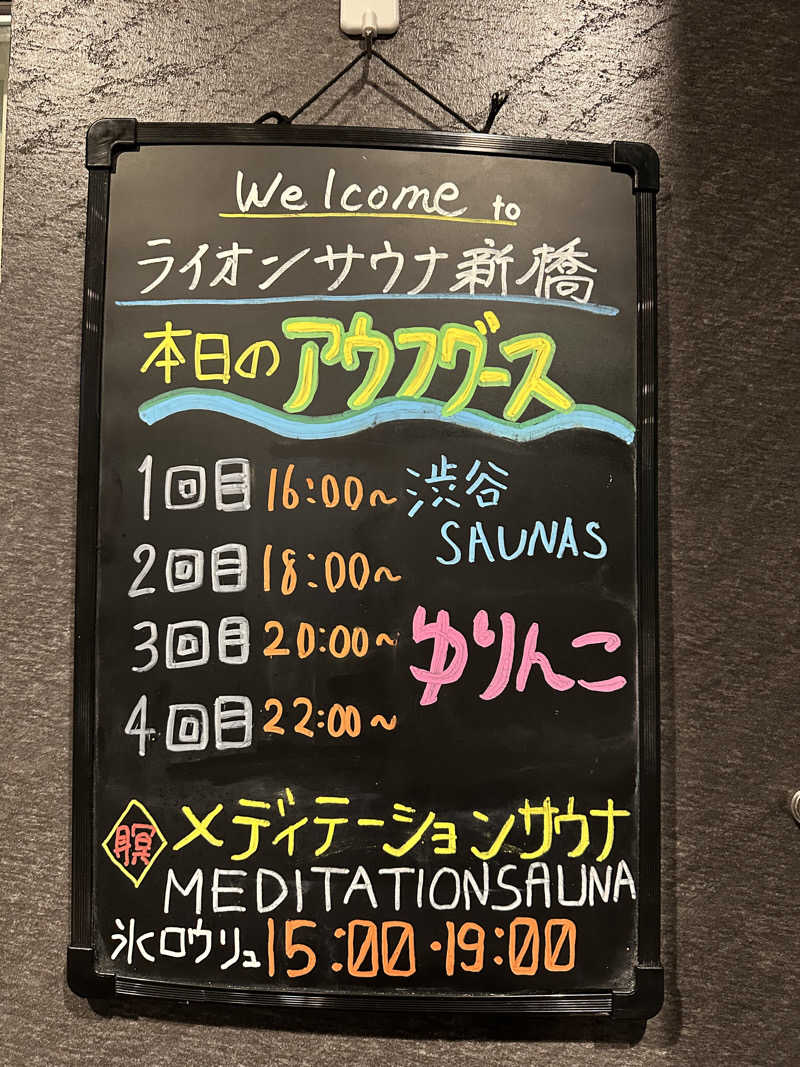 Welcome to
ライオンサウナ新橋
本日のアウフグース
1回目 16:00〜 渋谷
SAUNAS
2回目 18:00〜
3回目 20:00〜 ゆりんこ
4回目 22:00〜
瞑 メディテーションサウナ
MEDITATIONSAUNA
氷ロウリュ 15:00・19:00